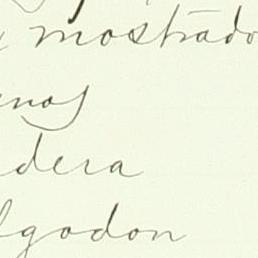 mostrado
enos
dera
lgodon